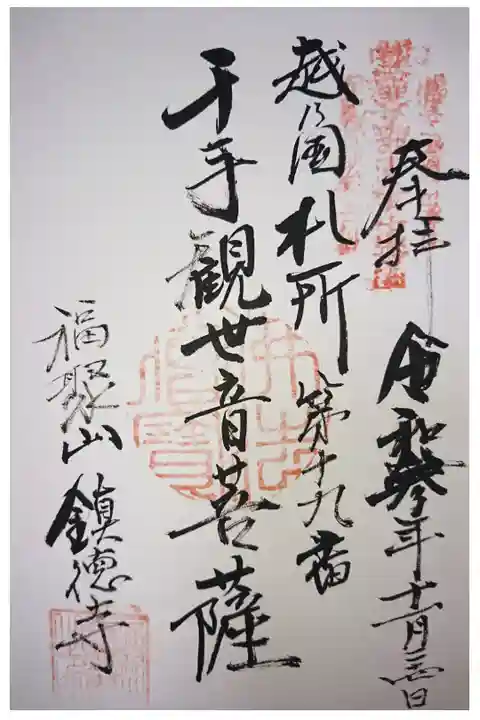 奉拝 令和参年十一月三日
越乃国札所 第十九番
千手観世音菩薩
福聚山 鎮徳寺